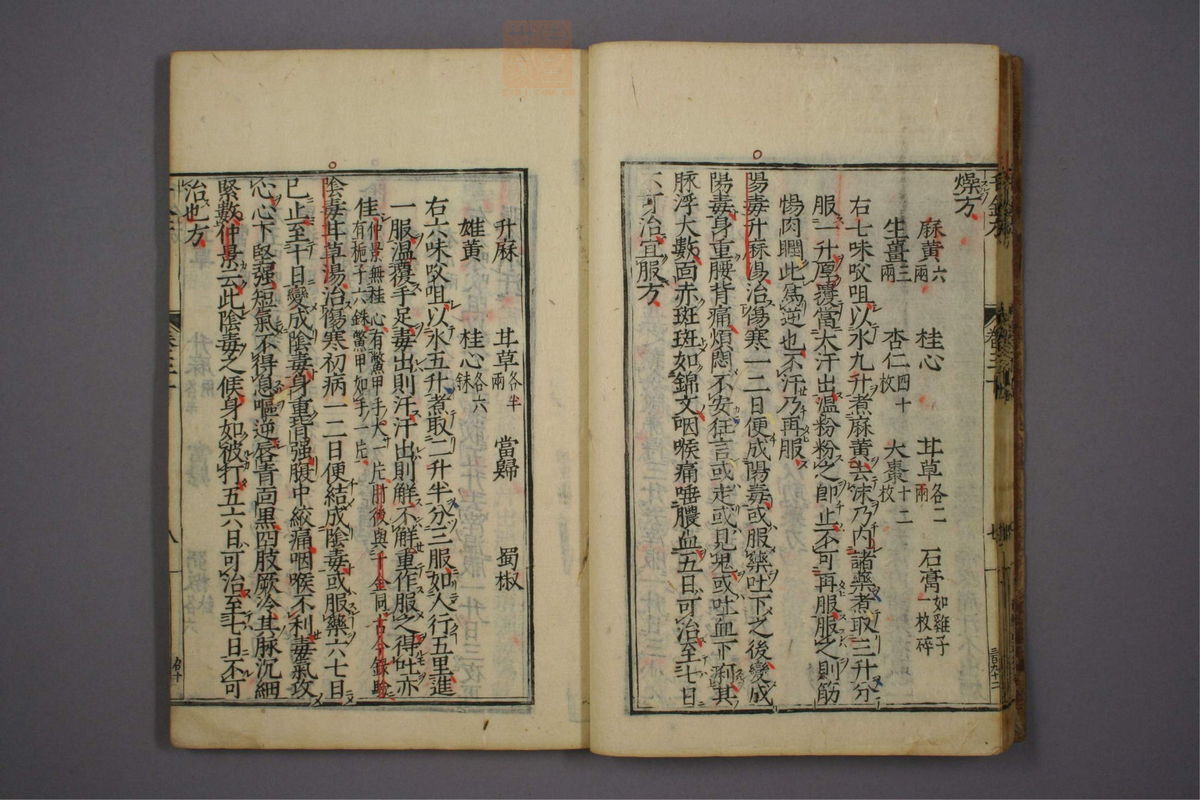 燥方
麻黄六兩 桂心 耳草各二兩 石膏如雞子一枚碎
生薑三兩 杏仁四十枚 大棗十二枚
右七味㕮咀以水九升煮麻黄去沫乃内諸藥煮取三升分
服一升厚覆當大汗出温粉粉之即止不可再服服之則筋
惕肉瞤此爲逆也不汗乃再服
陽毒升麻湯治傷寒一二日便成陽毒或服藥吐下之後變成
陽毒身重腰背痛煩悶不安狂言或走或見鬼或吐血下痢其
脉浮大數面赤斑斑如錦文咽喉痛唾膿血五日可治至七日
不可治宜服方
升麻 耳草各半兩 當歸 蜀椒
雄黄 桂心各六銖
右六味㕮咀以水五升煮取二升半分三服如人行五里進
一服温覆手足毒出則汗汗出則解不解重作服之得吐亦
佳仲景無桂心有鱉甲手大一片肘後與千金同古今録驗有梔子六銖鱉甲如手一片
陰毒耳草湯治傷寒初病一二日便結成陰毒或服藥六七日
已上至十日變成陰毒身重背强腹中絞痛咽喉不利毒氣攻
心心下堅强短氣不得息嘔逆唇青面黑四肢厥冷其脉沉細
緊數仲景云此陰毒之候身如被打五六日可治至七日不可
治也方
卷三十
八